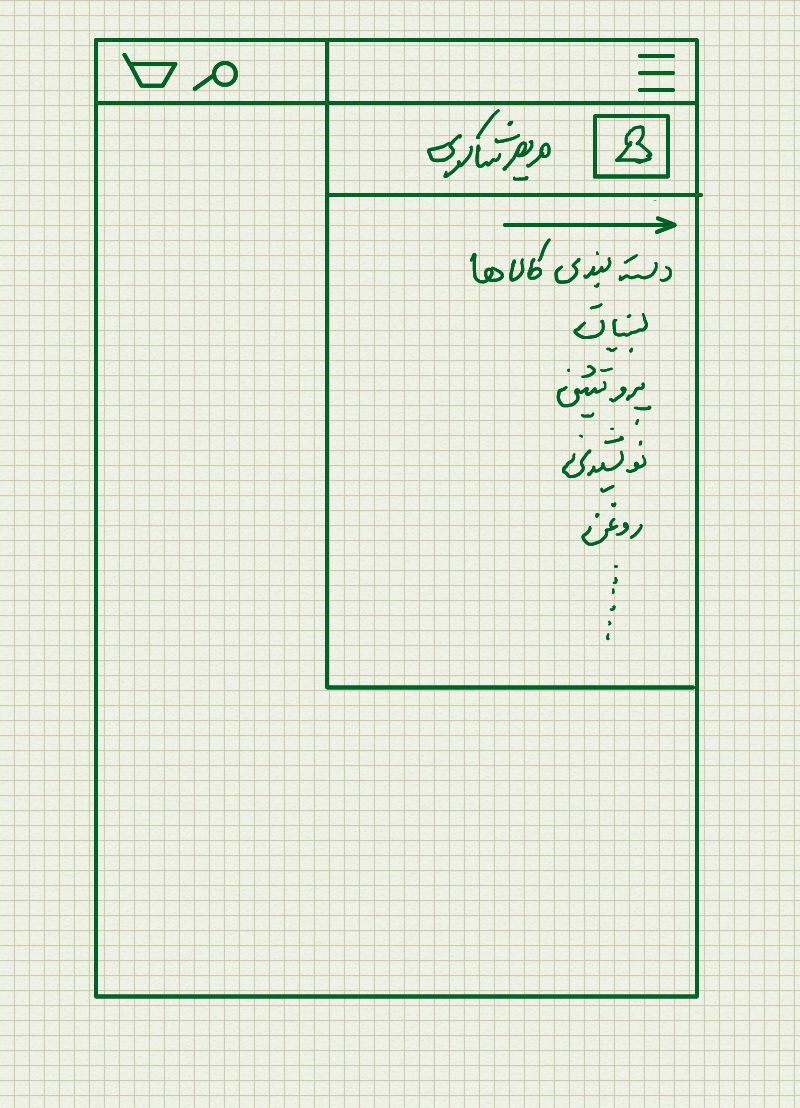 دسته بندی کالاها
لبنیات
پروتئین
نوشیدنی
روغن